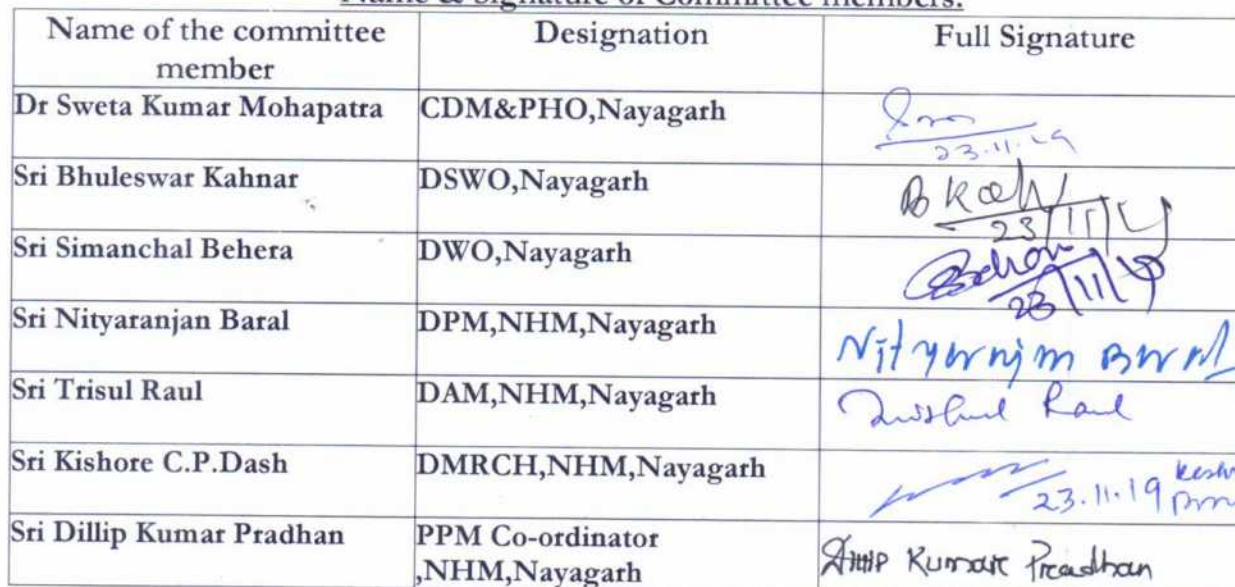 Name & Signature of Committee members.
Name of the committee member Designation Full Signature
Dr Sweta Kumar Mohapatra CDM&PHO,Nayagarh
23.11.19
Sri Bhuleswar Kahnar DSWO,Nayagarh
23/11/19
Sri Simanchal Behera DWO,Nayagarh Behera
23/11/19
Sri Nityaranjan Baral DPM,NHM,Nayagarh Nityaranjan Baral
Sri Trisul Raul DAM,NHM,Nayagarh Trishul Raul
Sri Kishore C.P.Dash DMRCH,NHM,Nayagarh
23.11.19
Sri Dillip Kumar Pradhan PPM Co-ordinator
,NHM,Nayagarh Dillip Kumar Pradhan